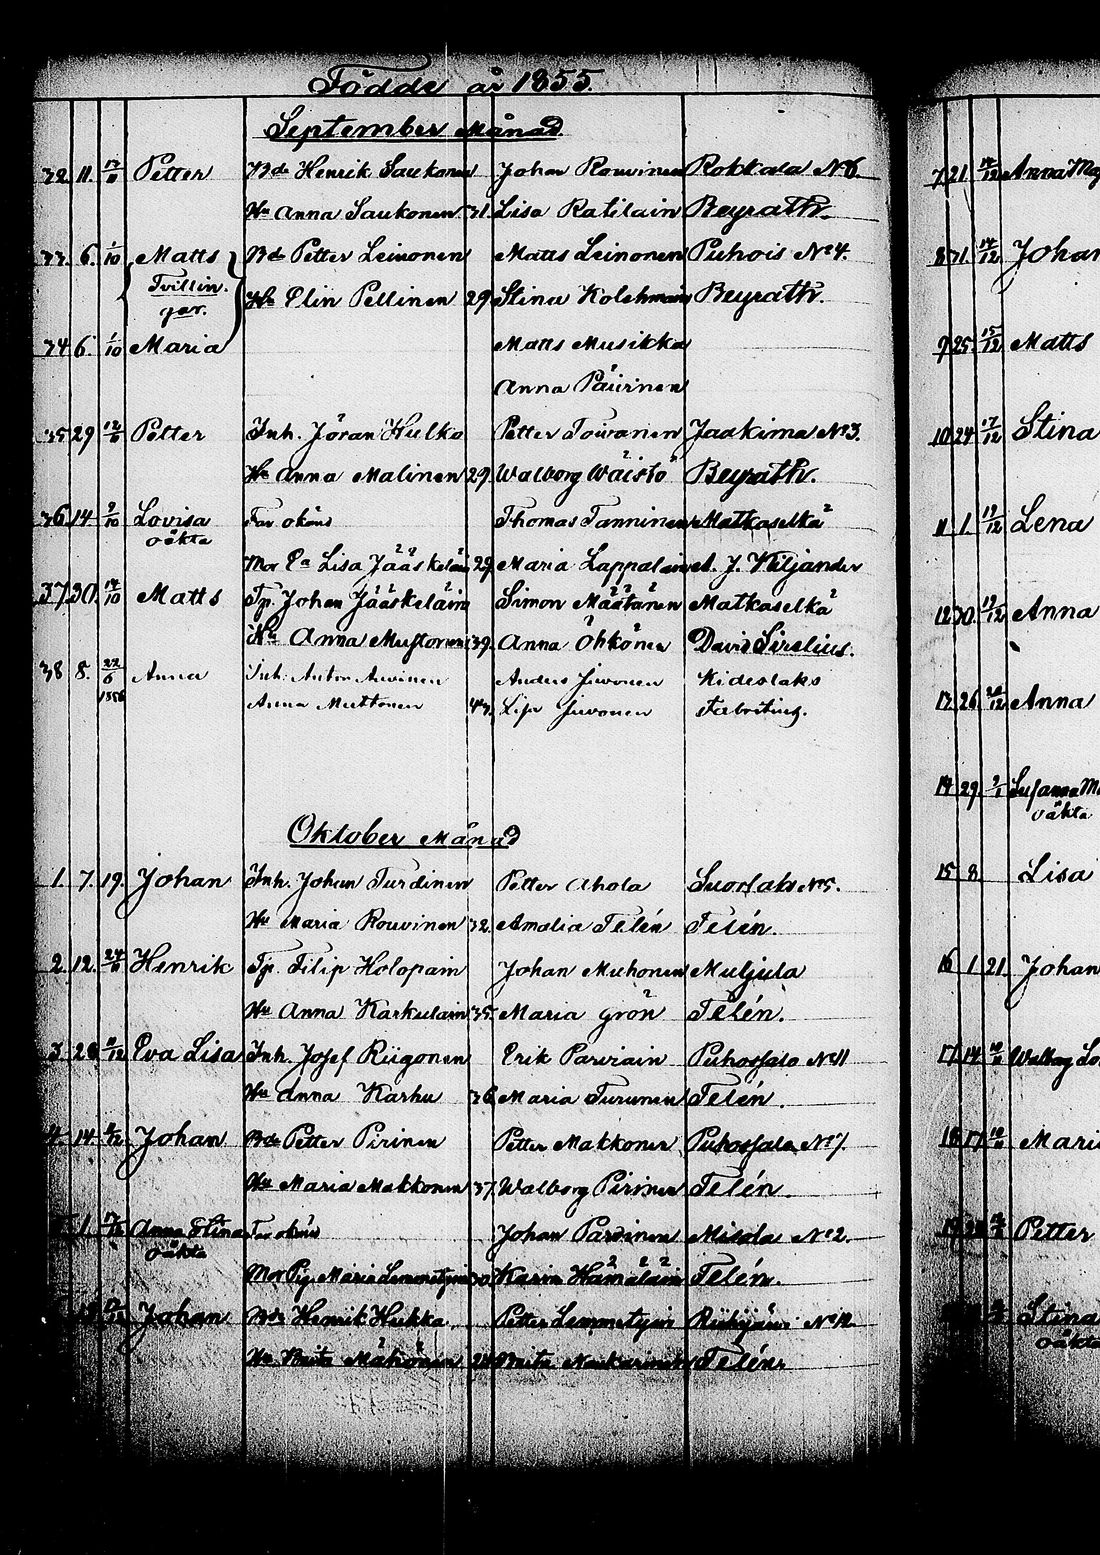 Födde år 1855.
September Månad
32 11. Petter Bde Henrik Saukonen Johan Rouvinen Rokkala No 6.
Hu Anna Saukonen 31. Lisa Ratilain Beyrath.
33. 6. 1/10 Matts Bde Petter Leinonen Matts Leinonen Puhois No 4.
Tvillin-
gar.
Hu Elin Pellinen 29 Stina Kolehmain Beyrath.
34 6. 1/10 Maria Matts Musikka
Anna Päärinen
35 29 Petter Inh. Jöran Hulko Petter Toivanen Jaakima No 3.
Hu Anna Malinen 29. Walborg Wäistö Beyrath.
36 14 9/10 Lovisa Far okänd Thomas Tanninen Matkaselkä
oäkta
Mor Ea Lisa Jääskeläin 29. Maria Lappalain A. J. Wiljander
37 30. 14/10 Matts Tp. Johan Jääskeläin Simon Määttänen Matkaselkä
Hu Anna Mustonen 39. Anna Öhkönen David Sirelius.
38 8. 22/6 1856 Anna Inh. Anton Auvinen Anders Juvonen Kideslaks
Anna Muttonen 43. Lisa Juvonen
Oktober Månad
1. 7. 19. Johan Inh. Johan Turdinen Petter Ahola Suorlaks No 5.
Hu Maria Rouvinen 32. Amalia Telén Telén.
2. 12. Henrik Tp. Filip Holopain Johan Muhonen Muljula
Hu Anna Karkulain 35. Maria Grön Telén.
3. 28 Eva Lisa Inh. Josef Riigonen Erik Parviain Puhossalo No 11
Hu Anna Karhu 36 Maria Turunen Telén.
4. 14 Johan Bde Petter Pirinen Petter Makkonen Puhossalo No 7.
Hu Maria Makkonen 37. Walborg Pirinen Telén.
1. Anna Stina Far okänd Johan Parvinen No 2.
oäkta
Mor Pig. Maria Lemmetyin 30. Karin Hämäläin Telén.
Johan Bde Henrik Hukka Petter Lemmetyin No 12.
Hu Brita 24 Brita Telén.
7 21 14/12 Anna Maj
8 31. 14/12 Johan
9 25. 15/12 Matts
10 24 17/12 Stina
11 1. 19/12 Lena
12 30. 19/12 Anna
13 26. Anna
14 29. Susanna M
oäkta
15 8 Lisa
16 1 21. Johan
17 14 Walborg Lo
18 17 Mari
Petter
Stina
oäkta